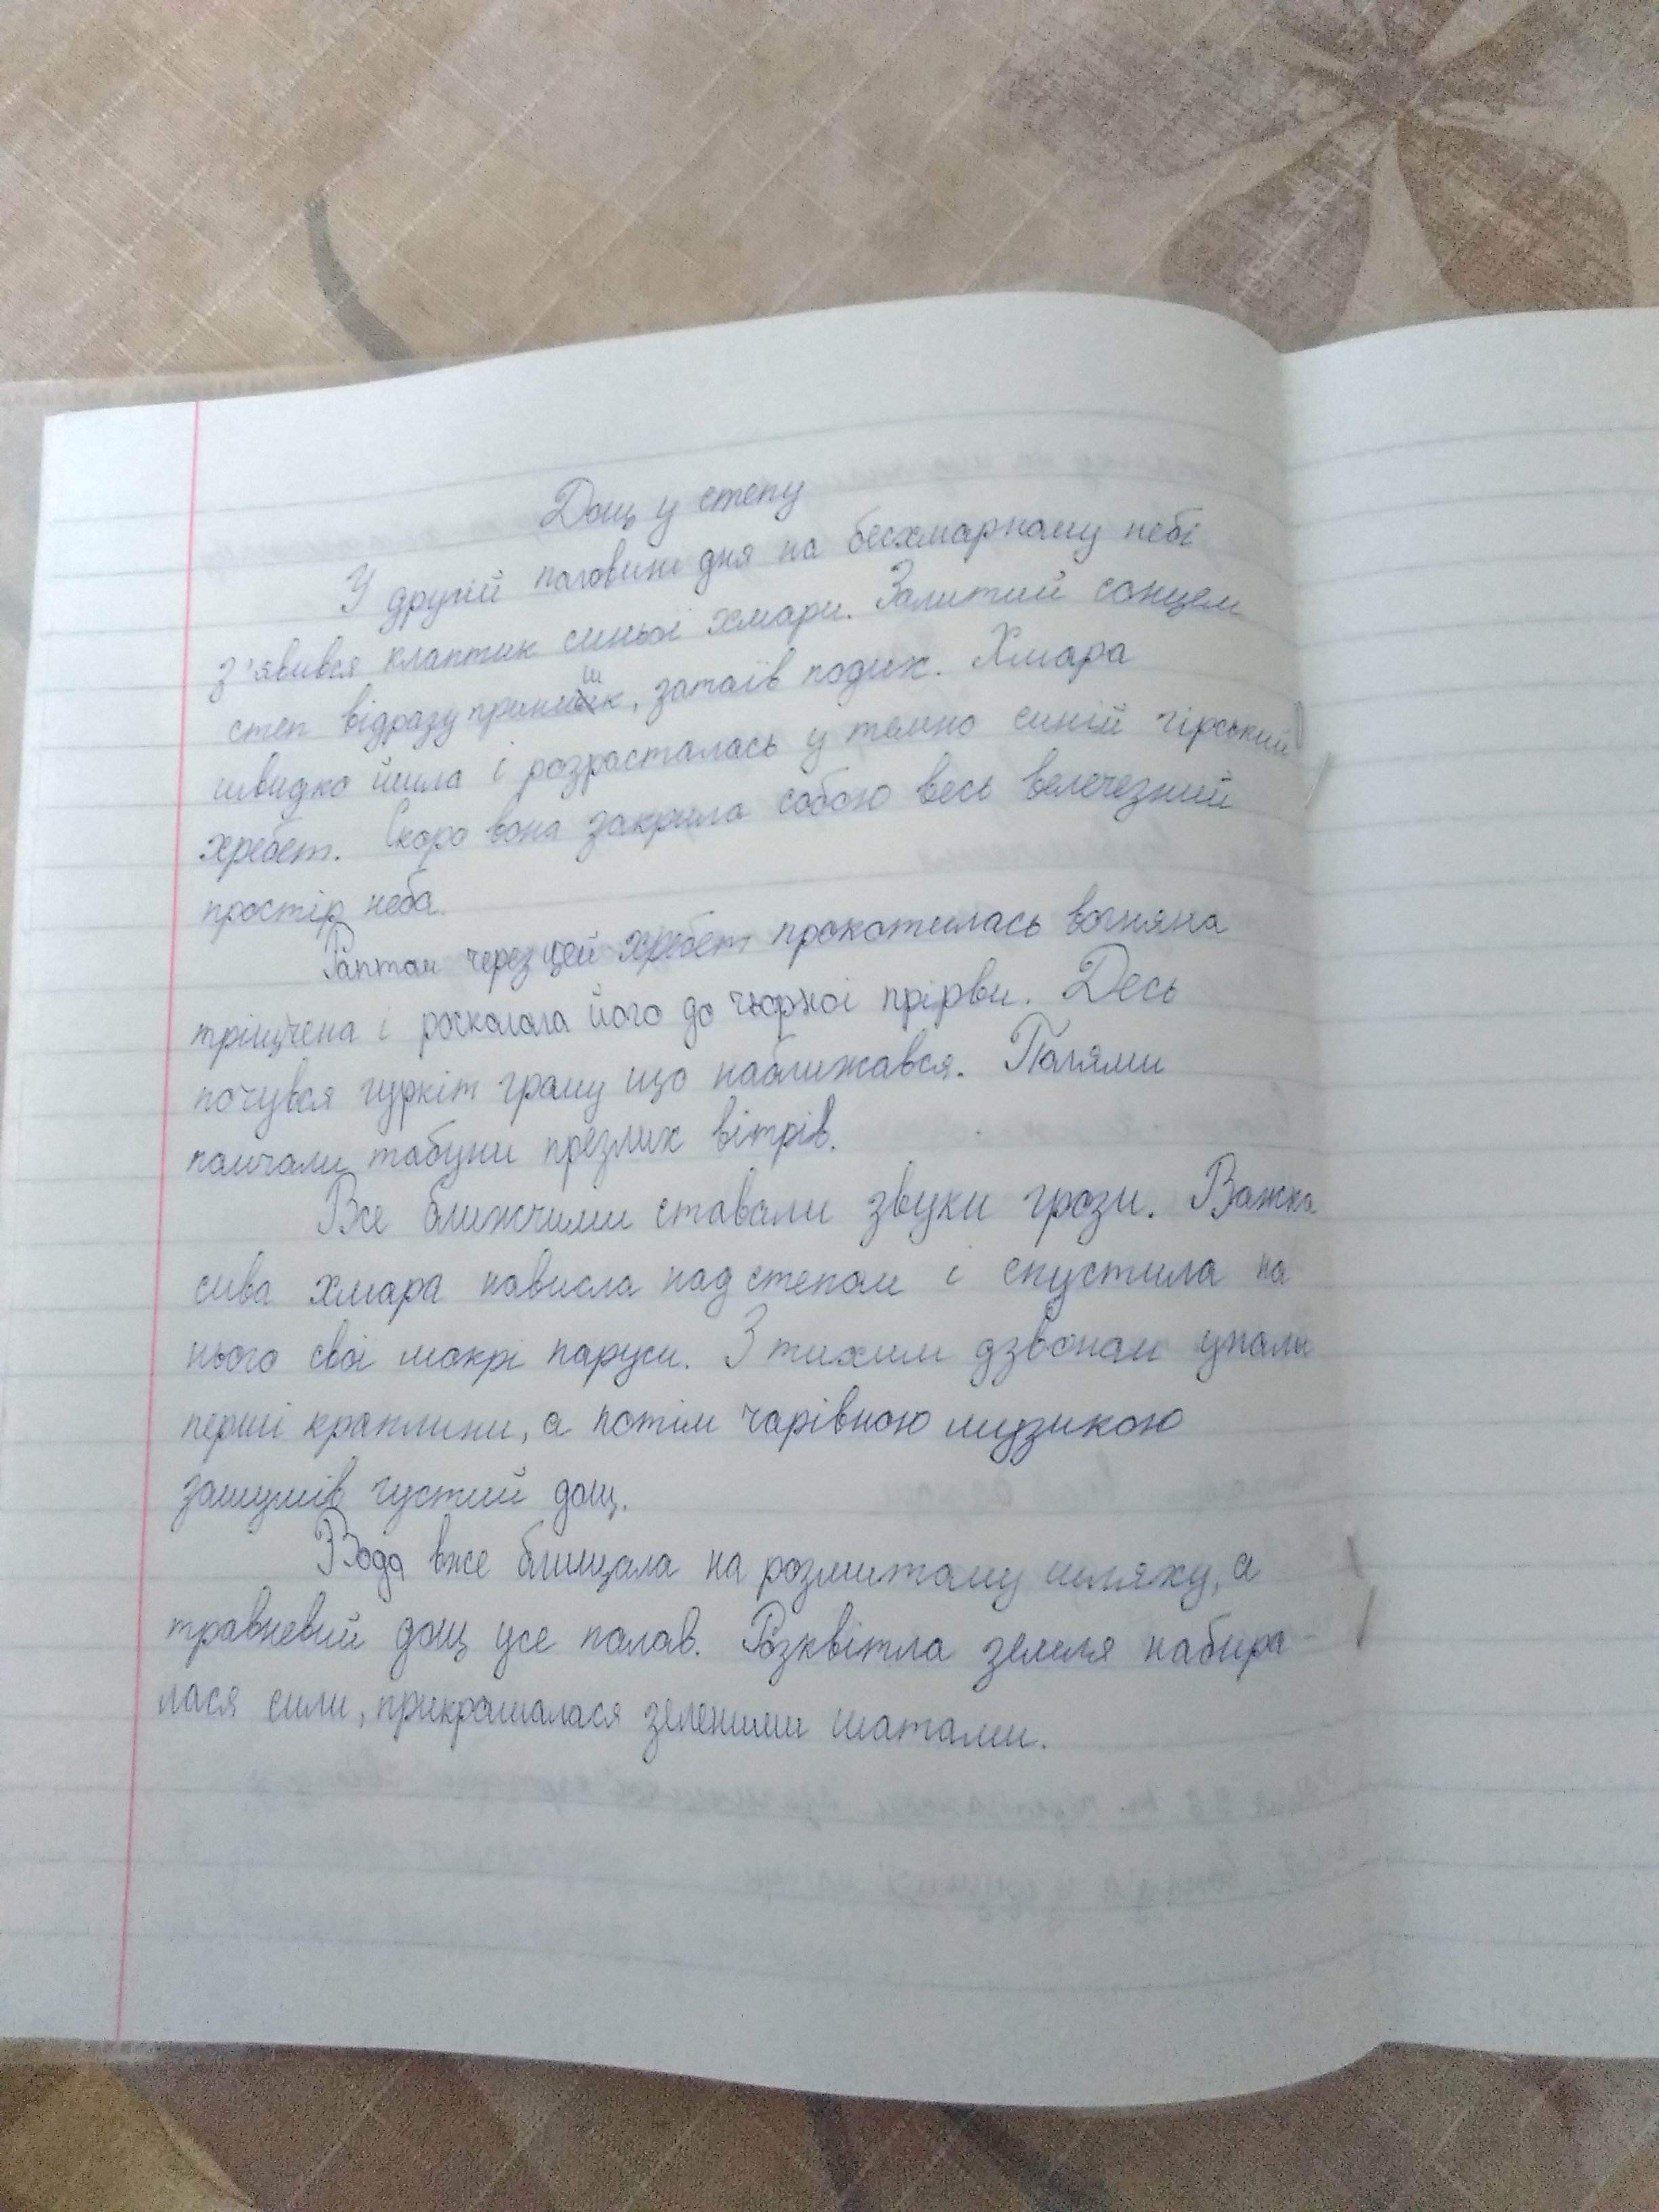 Дощ у степу
У другій половині дня на бесхмарному небі
з'явився клаптик синьої хмари. Залитий сонцем
степ відразу принишк, затаїв подих. Хмара
швидко йшла і розросталась у темно синій гірський
хребет. Скоро вона закрила собою весь велечезний
простір неба.
Раптом через цей хребет прокотилась вогняна
тріщчена і росколола його до чорної прірви. Десь
почувся гуркіт грому що наближався. Полями
помчали табуни презлих вітрів.
Все ближчими ставали звуки грози. Важка
сива хмара нависла над степом і спустила на
нього свої мокрі паруси. З тихим дзвоном упали
перші краплини, а потім чарівною музикою
зашумів густий дощ.
Вода вже блищала на розмитому шляху, а
травневий дощ усе полив. Розквітла земля набира-
лася сили, прикрашалася зеленими шатами.